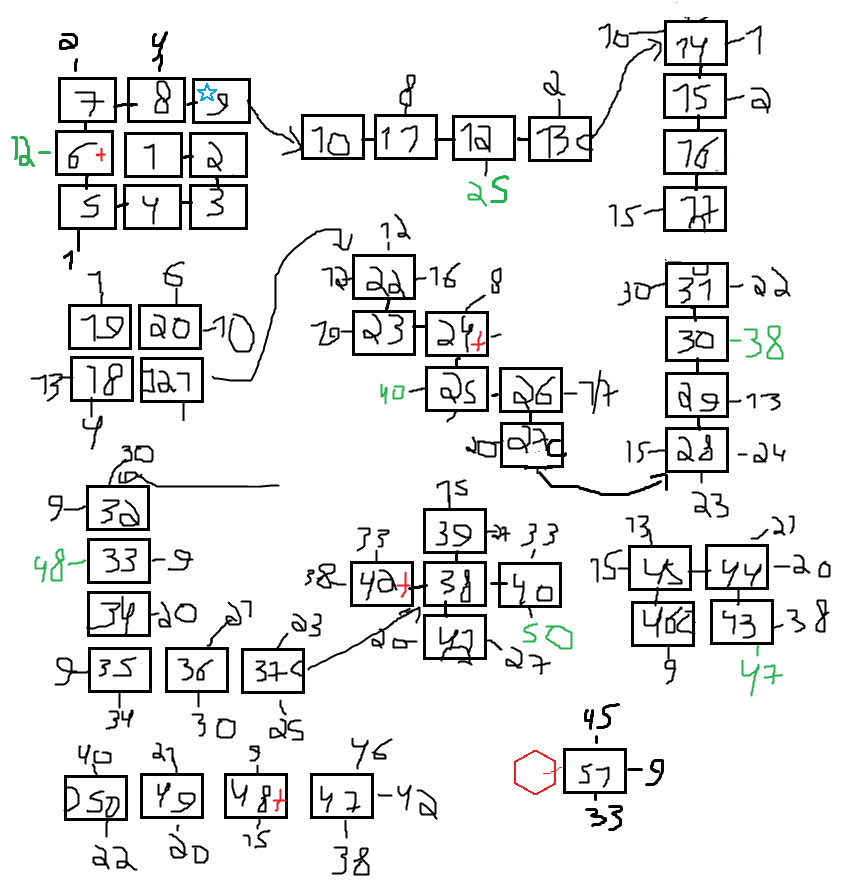 2 4
7 8 9
12 6 + 1 2
5 4 3
1
8 2
10 11 12 13
25
10 14 1
15 2
16
15 17
1 6
19 20 10
13 18 21
4
12
12 22 16
8
20 23 24 +
40 25 26 17
20 27
30 31 22
30 38
29 13
15 28 24
23
30
9 32
48 33 9
34 20
21 23
9 35 36 37
34 30 25
15
33 39 27 33
38 42 + 38 40
50
20 41 27
13 21
15 45 44 20
46 43 38
9 47
40 21 9 46
50 49 48 + 47 42
22 20 15 38
45
51 9
33